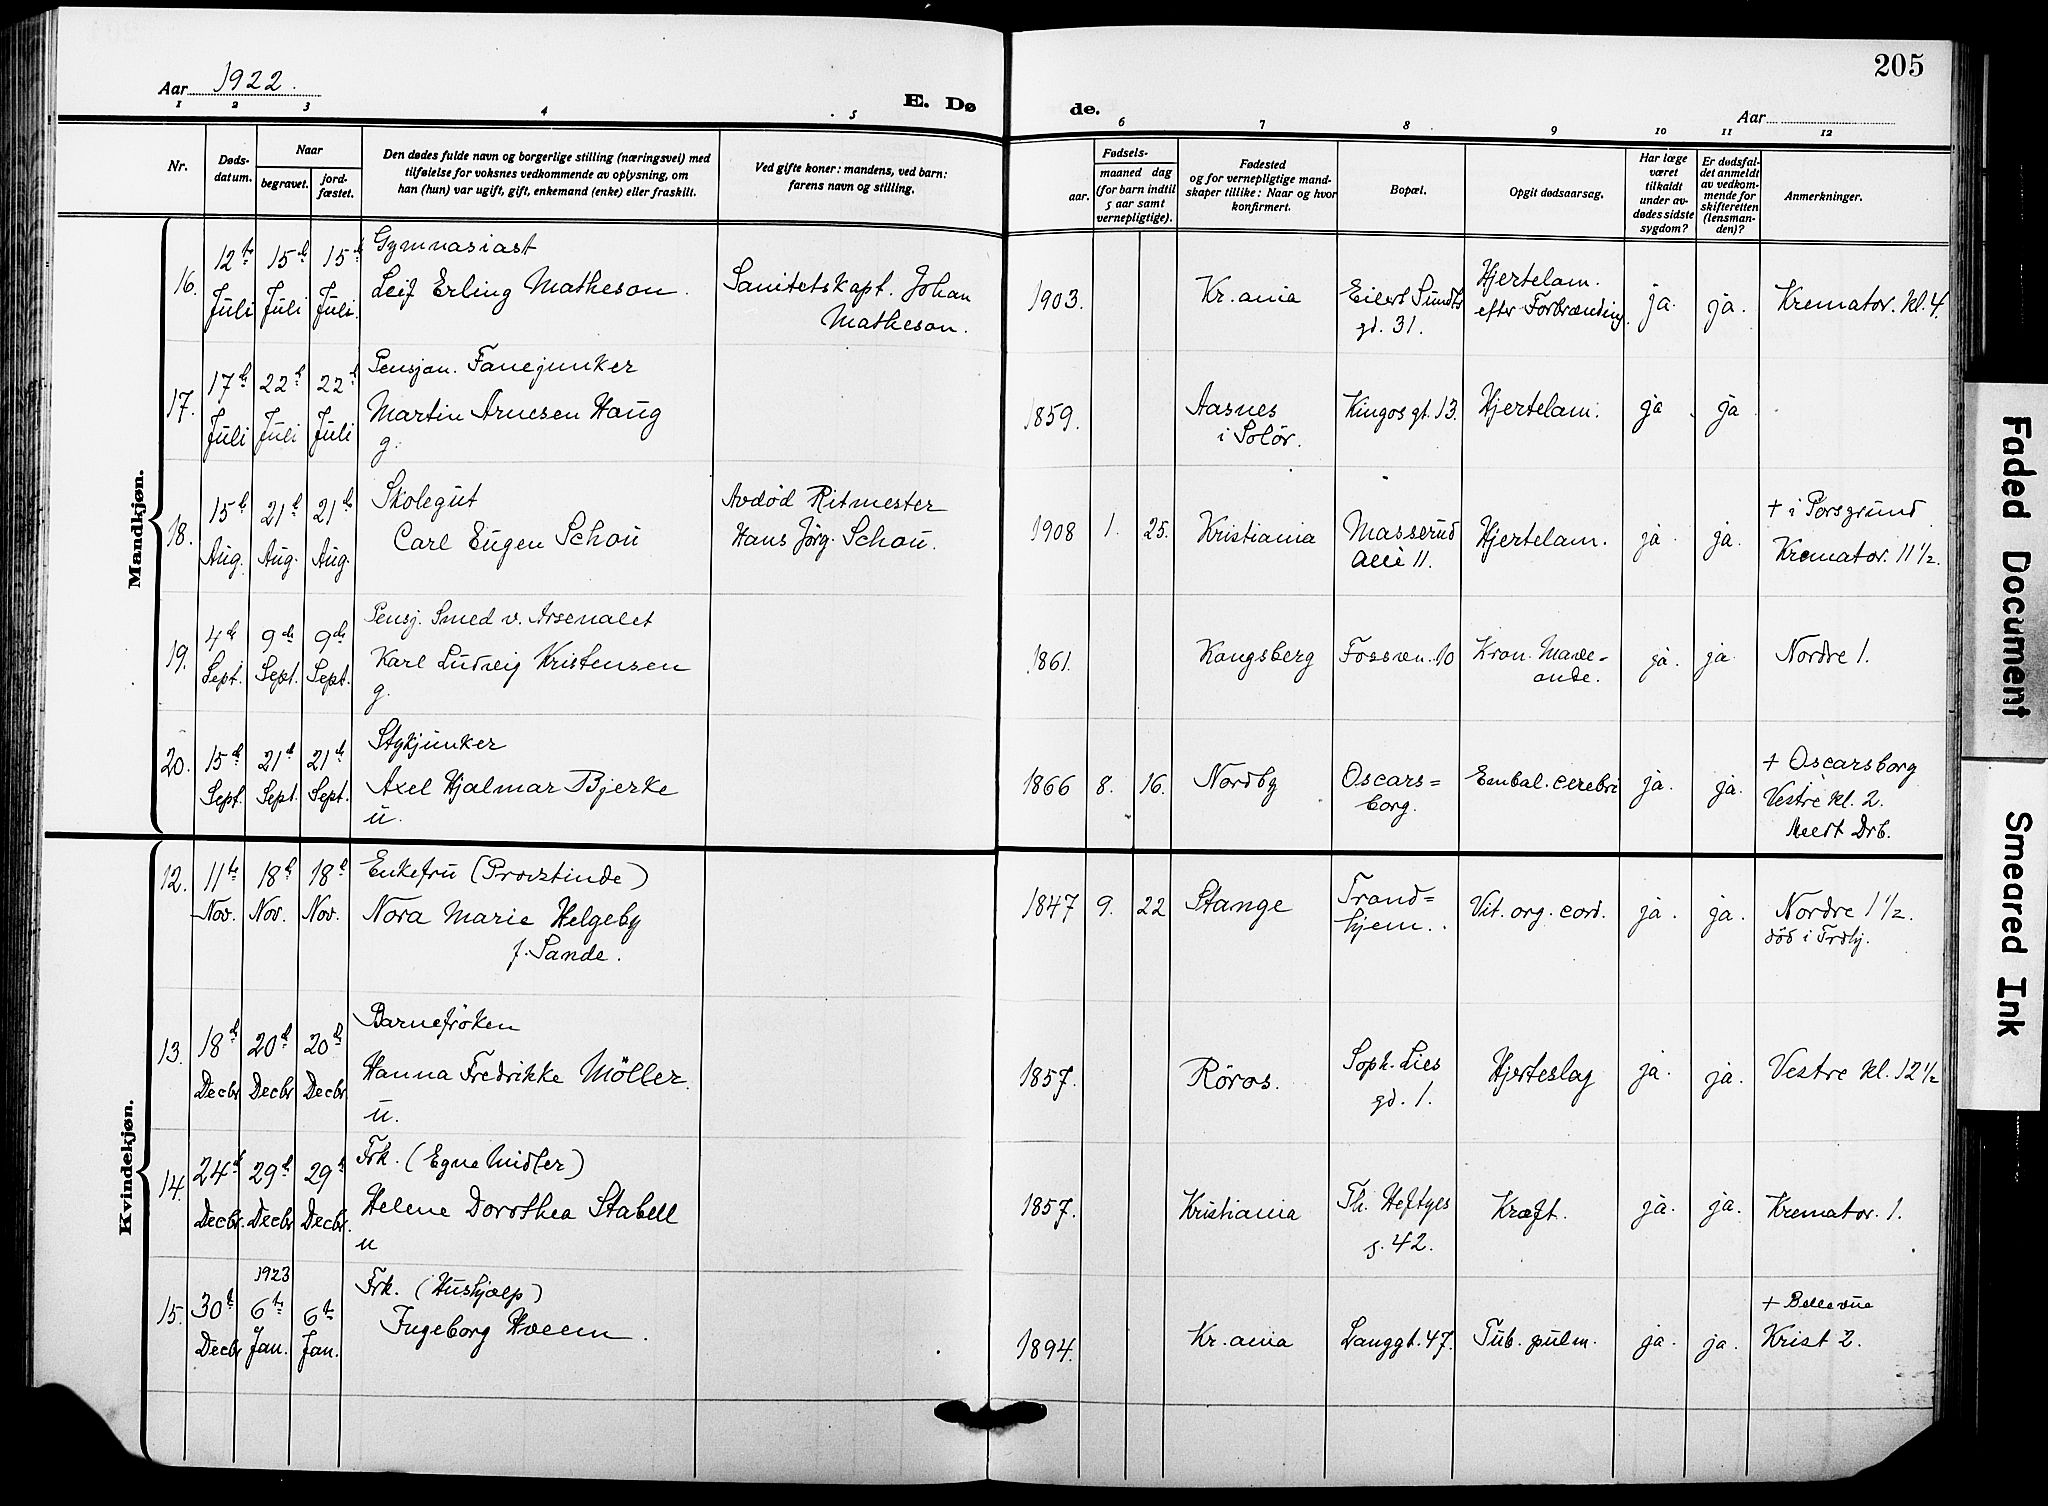 205
Aar 1922.
E. Dø de.
Aar
1 2 3 4 5 6 7 8 9 10 11 12
Nr.
Døds-
datum.
Naar
begravet.
jord-
fæstet.
Den dødes fulde navn og borgerlige stilling (næringsvei) med
tilføielse for voksnes vedkommende av oplysning, om
han (hun) var ugift, gift, enkemand (enke) eller fraskilt.
Ved gifte koner: mandens, ved barn:
farens navn og stilling.
Fødsels-
aar.
maaned dag
(for barn indtil
5 aar samt
vernepligtige).
Fødested
og for vernepligtige mand-
skaper tillike: Naar og hvor
konfirmert.
Bopæl.
Opgit dødsaarsag.
Har læge
været
tilkaldt
under av-
dødes sidste
sygdom?
Er dødsfal-
det anmeldt
av vedkom-
mende for
skifteretten
(lensman-
den)?
Anmerkninger.
Mandkjøn.
16.
12te
Juli
15de
Juli
15de
Juli.
Gymnasiast
Leif Erling Matheson.
Sanitetskapt. Johan
Matheson.
1903.
Kr.ania
Eilert Sundts
gd. 31.
Hjertelam.
efter Forbrænding.
ja.
ja.
Kremator. kl. 4.
17.
17de
Juli
22de
Juli
22de
Juli
Pensjon. Fanejunker
Martin Arnesen Haug
g.
1859.
Aasnes
i Solör.
Kingos gt. 13.
Hjertelam.
ja
ja
18.
15de
Aug.
21de
Aug.
21de
Aug.
Skolegut
Carl Eugen Schou
Avdød Ritmester
Hans Jörg. Schou.
1908
1.
25.
Kristiania
Masserud
Allé 11.
Hjertelam.
ja
ja.
+ i Porsgrund
Kremator. 11 1/2.
19.
4de
Sept.
9de
Sept.
9de
Sept.
Pensj. Smed v. Arsenalet
Karl Ludvig Kristensen
g.
1861.
Kongsberg
Fossvn. 10
Kron. Mave-
onde.
ja.
ja
Nordre 1.
20.
15de
Sept.
21de
Sept.
21de
Sept.
Stykjunker
Axel Hjalmar Bjerke
u.
1866
8.
16.
Nordby
Oscars=
borg.
Embal. cerebri
ja.
ja.
+ Oscarsborg
Vestre kl. 2.
Meldt Drb.
Kvindekjøn.
12.
11te
Nov.
18de
Nov.
18de
Nov.
Enkefru (Provstinde)
Nora Marie Helgeby
f. Sande.
1847
9.
22
Stange
Trond=
hjem.
Vit. org. cord.
ja.
ja.
Nordre 1 1/2.
död i Trdhj.
13.
18de
Decbr
20de
Decbr
20de
Decbr
Barnefröken
Hanna Fredrikke Möller.
u.
1857.
Röros.
Soph. Lies
gd. 1.
Hjerteslag
ja.
ja.
Vestre kl. 12 1/2
14.
24de
Decbr.
29de
Decbr
29de
Decbr.
Frk. (Egne Midler)
Helene Dorothea Stabell
u
1857.
Kristiania
Th. Heftyes
g. 42.
Kræft.
ja.
ja.
Kremator. 1.
15.
30te
Decbr
1923
6te
Jan.
6te
Jan.
Frk. (Hushjælp)
Ingeborg Hveem.
1894.
Kr.ania
Langgt. 47.
Tub. pulm.
ja.
ja.
+ Bellevue
Krist 2.
Faded Document
Smeared Ink